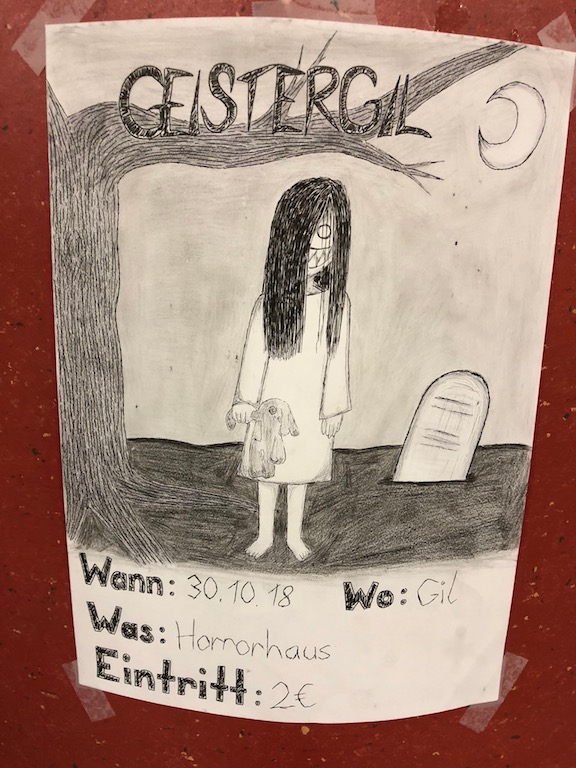 GEISTERGIL
Wann: 30.10.18 Wo: Gil
Was: Horrorhaus
Eintritt: 2€